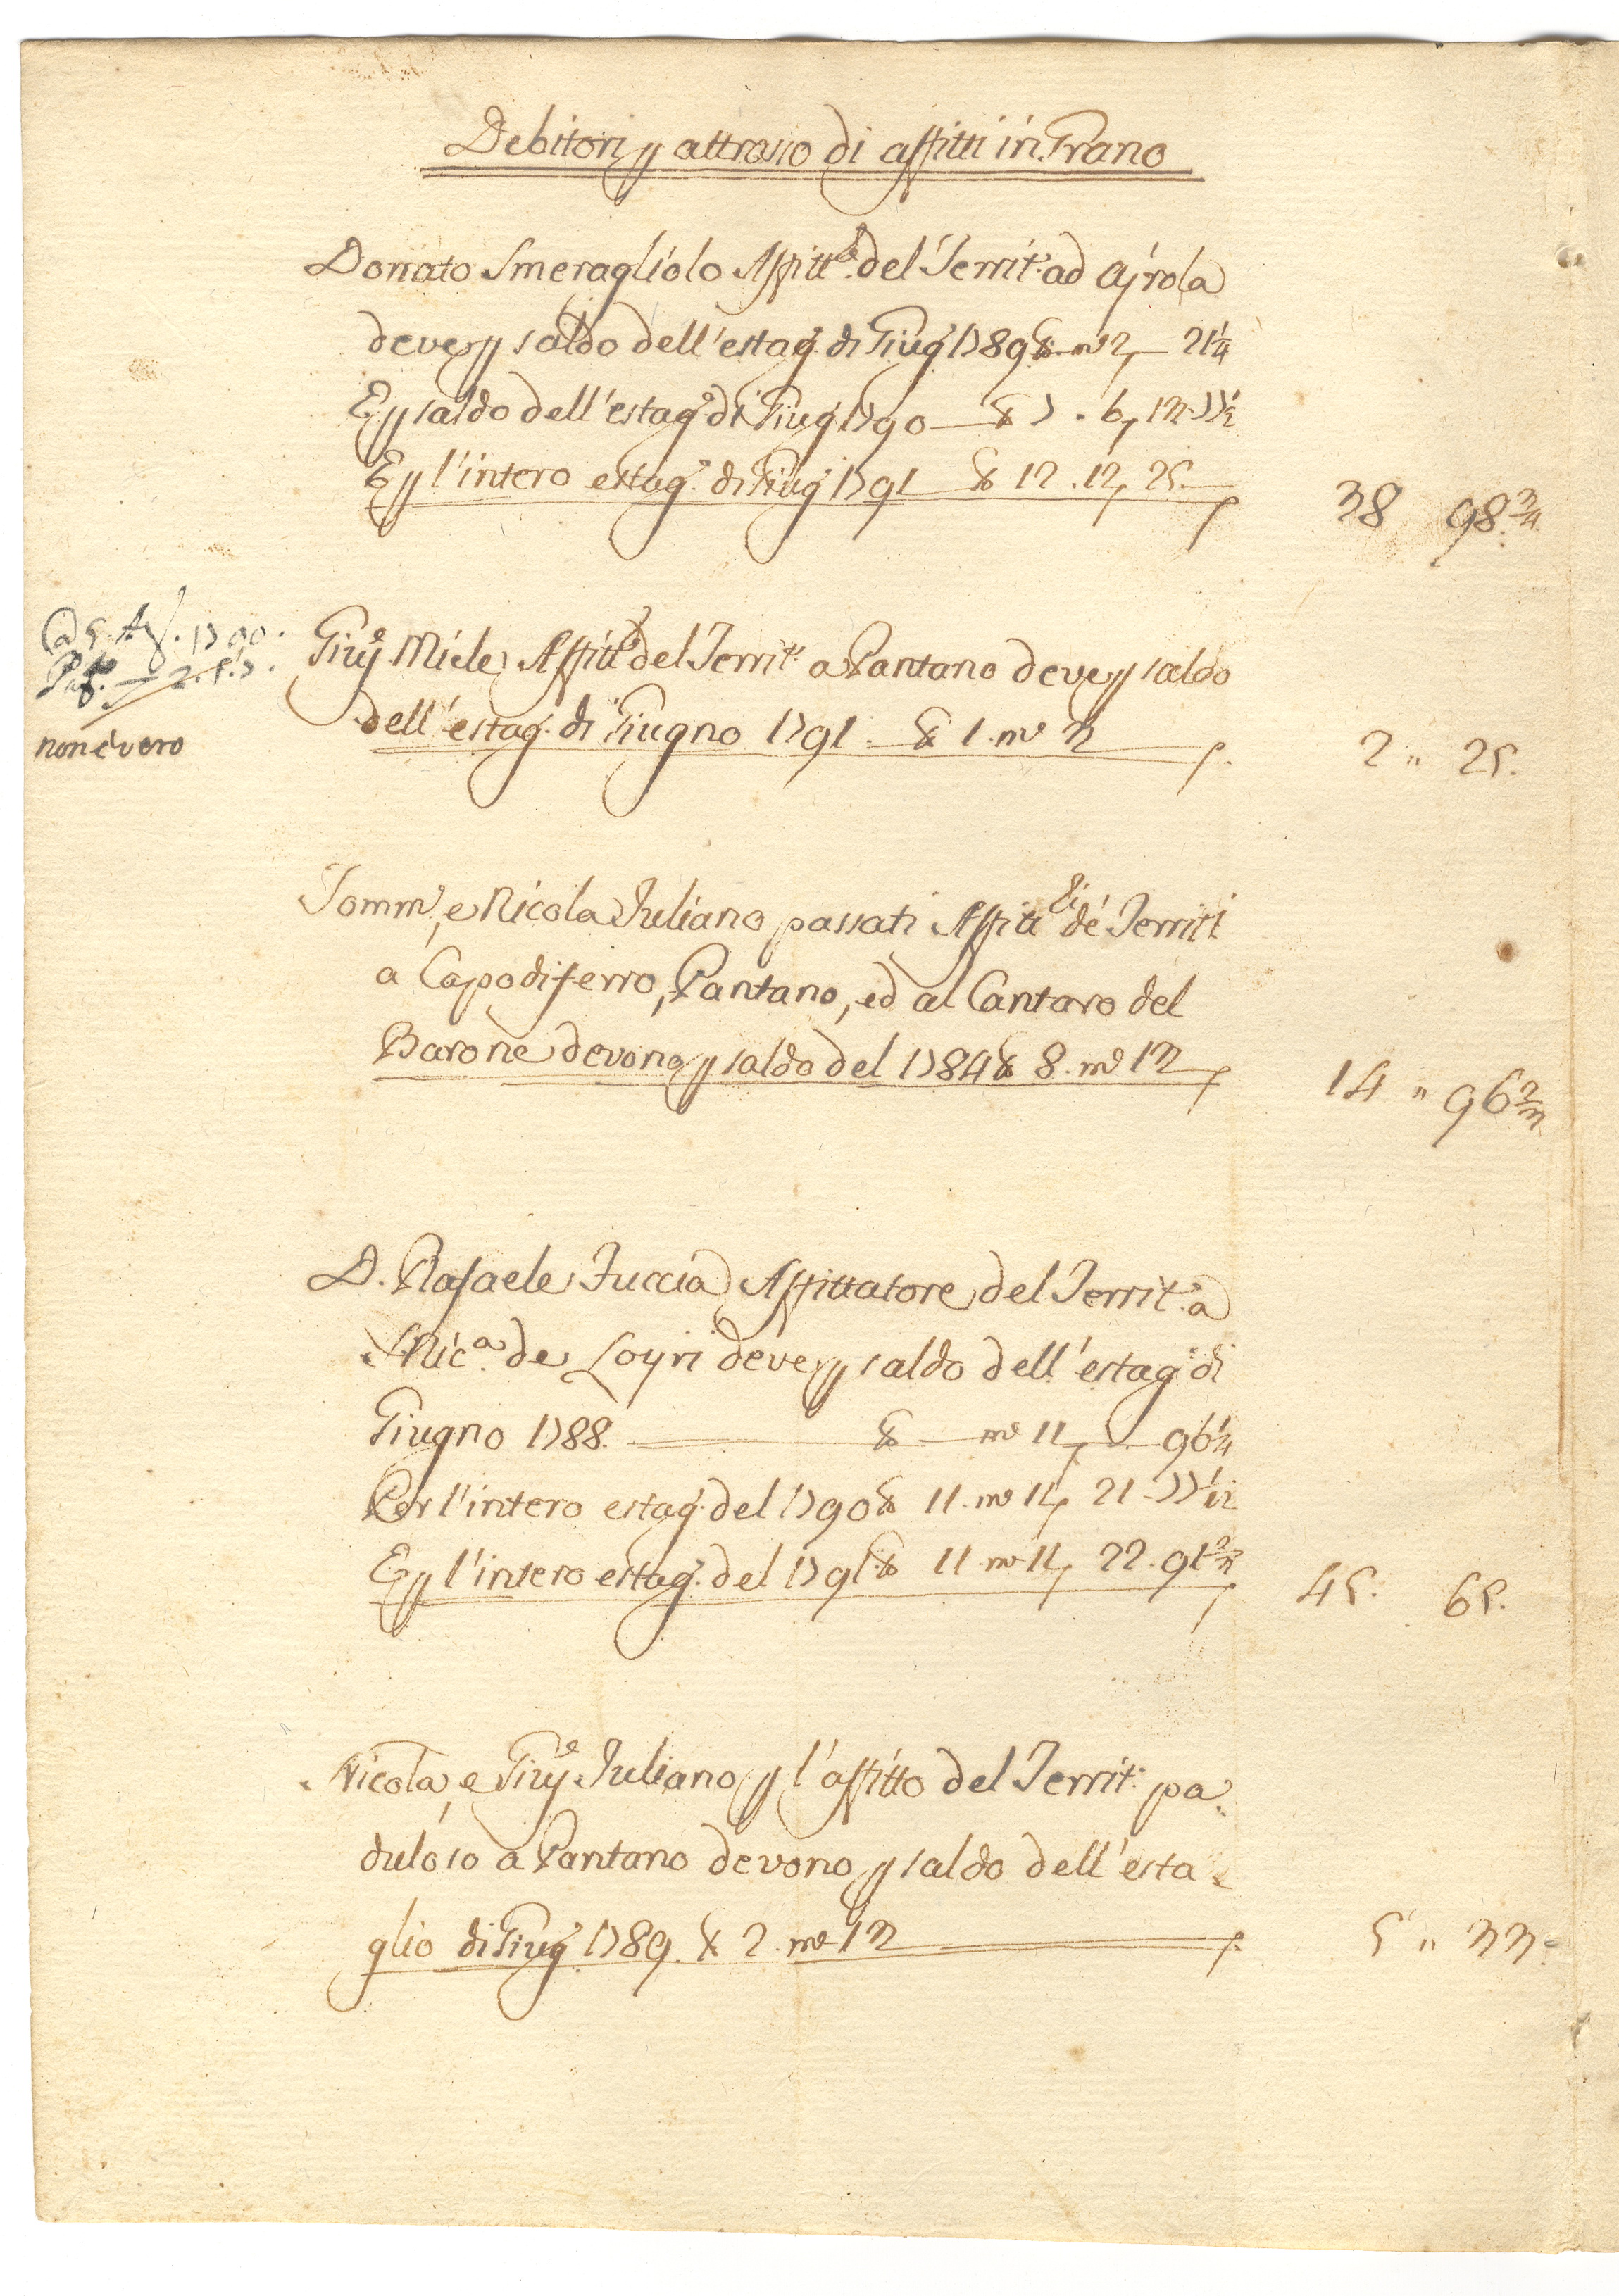 Debitori p attrasso di affitti in Grano
Donato Smeragliolo Affitt.re del Territ.o ad Ajrola
deve p saldo dell'estag.o di Giug.o 1789 t.a — m.e 2, — 21 1/4
E p saldo dell'estag.o di Giug.o 1790 — t.a 7 . 6, 13.77 1/2
E p l'intero estag.o di Giug.o 1791 t.a 12 . 12, 25. —
38 98. 3/4
non è vero
Gius.e Miele Affitt.re del Territ.o a Pantano deve p saldo
dell'estag.o di Giugno 1791. t.a 1. m.e 3
2 " 25.
Tomm.o, e Nicola Iuliano passati Affitt.ri de' Territ.i
a Capodiferro, Pantano, ed al Cantaro del
Barone devono p saldo del 1784 t.a 8. m.e 13
14 " 96 2/3
D. Rafaele Tuccia Affittatore del Territ.o a
S. Nic.a de Loyri deve p saldo dell'estag.o di
Giugno 1788. — t.a — m.e 11, — 96 1/4
Per l'intero estag.o del 1790 t.a 11. m.e 11, 21.77 1/12
E p l'intero estag.o del 1791. t.a 11. m.e 11, 22.91 2/3
45. 65.
Nicola, e Gius.e Iuliano p l'affitto del Territ.o pa=
duloso a Pantano devono p saldo dell'esta=
glio di Giug.o 1789. t.a 2. m.e 13
5 " 33.